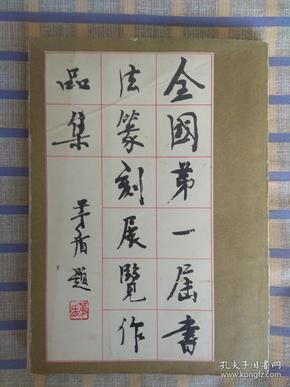 全國第一届書
法篆刻展覽作
品集
茅盾題
孔夫子旧书网